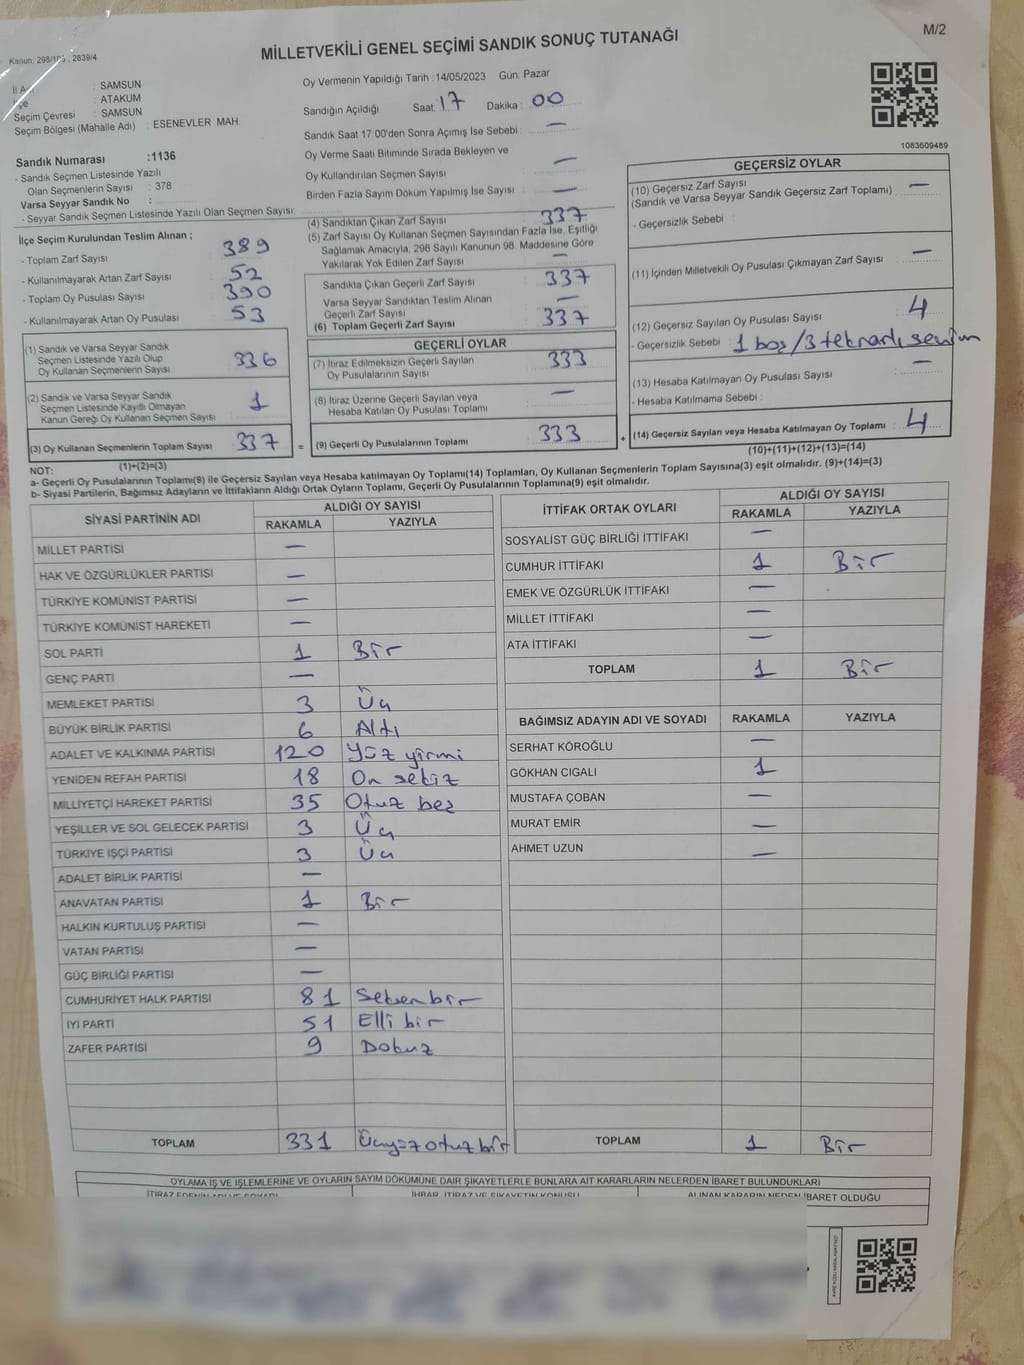 M/2
Kanun: 298/105, 2839/4
MİLLETVEKİLİ GENEL SEÇİMİ SANDIK SONUÇ TUTANAĞI
SAMSUN
ATAKUM
Seçim Çevresi : SAMSUN
Seçim Bölgesi (Mahalle Adı) : ESENEVLER MAH.
Oy Vermenin Yapıldığı Tarih : 14/05/2023 Gün: Pazar
Sandığın Açıldığı Saat: 17 Dakika : 00
Sandık Saat 17:00'den Sonra Açımış İse Sebebi : —
Oy Verme Saati Bitiminde Sırada Bekleyen ve
Oy Kullandırılan Seçmen Sayısı : —
Birden Fazla Sayım Döküm Yapılmış İse Sayısı : —
1083609489
Sandık Numarası :1136
- Sandık Seçmen Listesinde Yazılı
Olan Seçmenlerin Sayısı : 378
Varsa Seyyar Sandık No :
- Seyyar Sandık Seçmen Listesinde Yazılı Olan Seçmen Sayısı:
İlçe Seçim Kurulundan Teslim Alınan ;
- Toplam Zarf Sayısı : 389
- Kullanılmayarak Artan Zarf Sayısı : 52
- Toplam Oy Pusulası Sayısı : 390
- Kullanılmayarak Artan Oy Pusulası : 53
(1) Sandık ve Varsa Seyyar Sandık
Seçmen Listesinde Yazılı Olup
Oy Kullanan Seçmenlerin Sayısı : 336
(2) Sandık ve Varsa Seyyar Sandık
Seçmen Listesinde Kayıtlı Olmayan
Kanun Gereği Oy Kullanan Seçmen Sayısı : 1
(3) Oy Kullanan Seçmenlerin Toplam Sayısı : 337
(1)+(2)=(3)
(4) Sandıktan Çıkan Zarf Sayısı : 337
(5) Zarf Sayısı Oy Kullanan Seçmen Sayısından Fazla İse, Eşitliği
Sağlamak Amacıyla, 298 Sayılı Kanunun 98. Maddesine Göre
Yakılarak Yok Edilen Zarf Sayısı : —
Sandıkta Çıkan Geçerli Zarf Sayısı : 337
Varsa Seyyar Sandıktan Teslim Alınan
Geçerli Zarf Sayısı : —
(6) Toplam Geçerli Zarf Sayısı : 337
GEÇERLİ OYLAR
(7) İtiraz Edilmeksizin Geçerli Sayılan
Oy Pusulalarının Sayısı : 333
(8) İtiraz Üzerine Geçerli Sayılan veya
Hesaba Katılan Oy Pusulası Toplamı : —
= (9) Geçerli Oy Pusulalarının Toplamı : 333
GEÇERSİZ OYLAR
(10) Geçersiz Zarf Sayısı : —
(Sandık ve Varsa Seyyar Sandık Geçersiz Zarf Toplamı)
- Geçersizlik Sebebi :
(11) İçinden Milletvekili Oy Pusulası Çıkmayan Zarf Sayısı : —
(12) Geçersiz Sayılan Oy Pusulası Sayısı : 4
- Geçersizlik Sebebi : 1 boş/3 tekrarlı seçim
(13) Hesaba Katılmayan Oy Pusulası Sayısı : —
- Hesaba Katılmama Sebebi :
+ (14) Geçersiz Sayılan veya Hesaba Katılmayan Oy Toplamı : 4
(10)+(11)+(12)+(13)=(14)
NOT:
a- Geçerli Oy Pusulalarının Toplamı(9) ile Geçersiz Sayılan veya Hesaba katılmayan Oy Toplamı(14) Toplamları, Oy Kullanan Seçmenlerin Toplam Sayısına(3) eşit olmalıdır. (9)+(14)=(3)
b- Siyasi Partilerin, Bağımsız Adayların ve İttifakların Aldığı Ortak Oyların Toplamı, Geçerli Oy Pusulalarının Toplamına(9) eşit olmalıdır.
SİYASİ PARTİNİN ADI ALDIĞI OY SAYISI
RAKAMLA YAZIYLA
MİLLET PARTİSİ —
HAK VE ÖZGÜRLÜKLER PARTİSİ —
TÜRKİYE KOMÜNİST PARTİSİ —
TÜRKİYE KOMÜNİST HAREKETİ —
SOL PARTİ 1 Bir
GENÇ PARTİ —
MEMLEKET PARTİSİ 3 Üç
BÜYÜK BİRLİK PARTİSİ 6 Altı
ADALET VE KALKINMA PARTİSİ 120 Yüz yirmi
YENİDEN REFAH PARTİSİ 18 On sekiz
MİLLİYETÇİ HAREKET PARTİSİ 35 Otuz beş
YEŞİLLER VE SOL GELECEK PARTİSİ 3 Üç
TÜRKİYE İŞÇİ PARTİSİ 3 Üç
ADALET BİRLİK PARTİSİ —
ANAVATAN PARTİSİ 1 Bir
HALKIN KURTULUŞ PARTİSİ —
VATAN PARTİSİ —
GÜÇ BİRLİĞİ PARTİSİ —
CUMHURİYET HALK PARTİSİ 81 Seksen bir
İYİ PARTİ 51 Elli bir
ZAFER PARTİSİ 9 Dokuz
TOPLAM 331 Üçyüz otuz bir
İTTİFAK ORTAK OYLARI ALDIĞI OY SAYISI
RAKAMLA YAZIYLA
SOSYALİST GÜÇ BİRLİĞİ İTTİFAKI —
CUMHUR İTTİFAKI 1 Bir
EMEK VE ÖZGÜRLÜK İTTİFAKI —
MİLLET İTTİFAKI —
ATA İTTİFAKI —
TOPLAM 1 Bir
BAĞIMSIZ ADAYIN ADI VE SOYADI RAKAMLA YAZIYLA
SERHAT KÖROĞLU —
GÖKHAN CIGALI 1
MUSTAFA ÇOBAN —
MURAT EMİR —
AHMET UZUN —
TOPLAM 1 Bir
OYLAMA İŞ VE İŞLEMLERİNE VE OYLARIN SAYIM DÖKÜMÜNE DAİR ŞİKAYETLERLE BUNLARA AİT KARARLARIN NELERDEN İBARET BULUNDUKLARI
İTİRAZ EDENİN ADI VE SOYADI İHBAR, İTİRAZ VE ŞİKAYETİN KONUSU ALINAN KARARIN NEDEN İBARET OLDUĞU